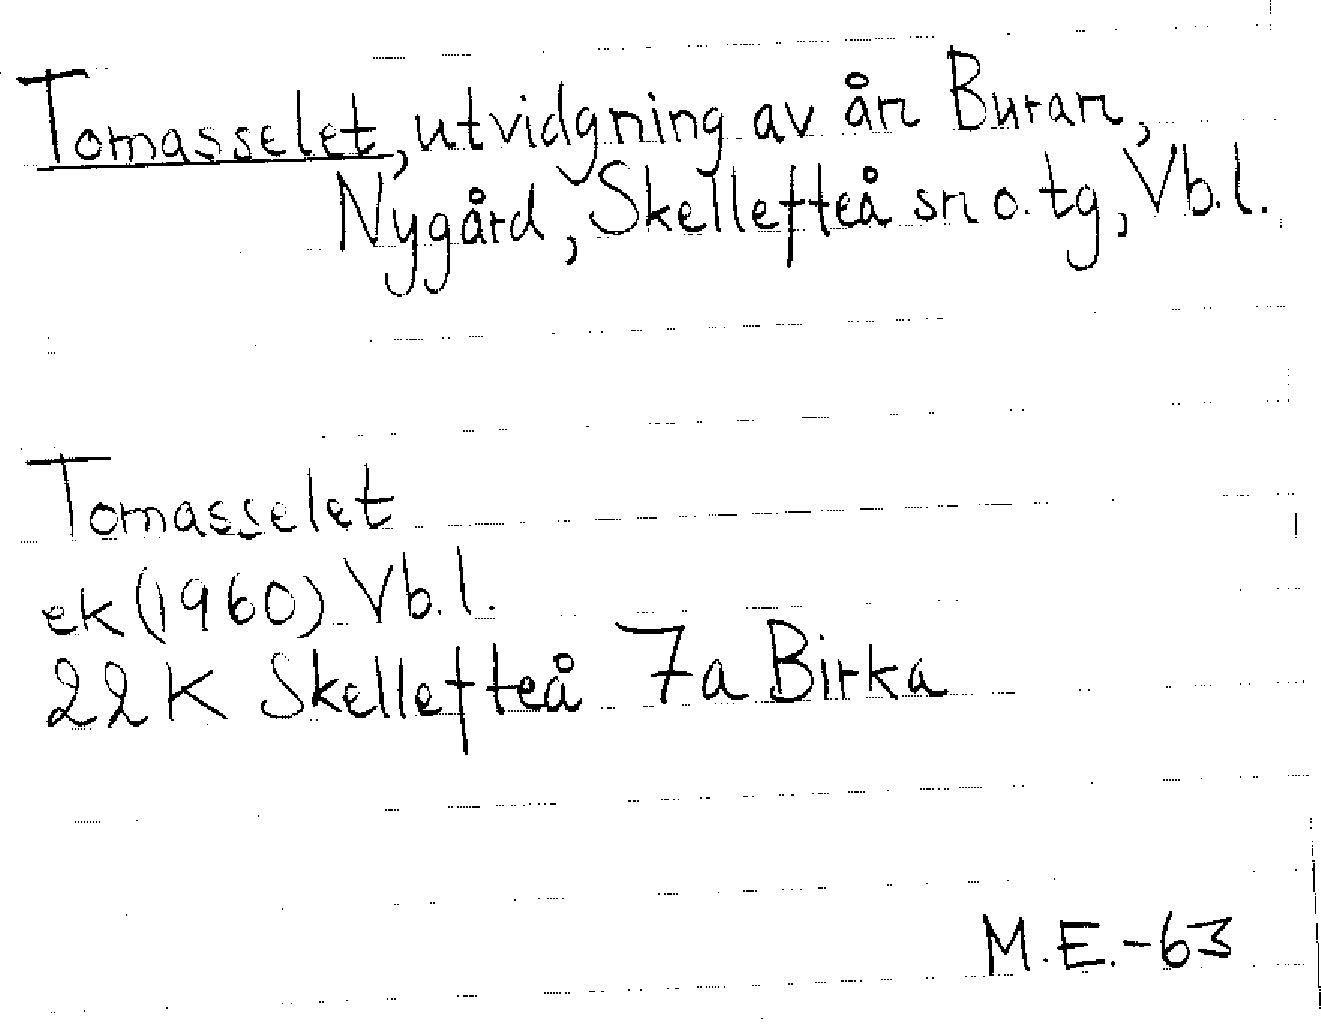 Tomasselet, utvidgning av ån Buran,
Nygård, Skellefteå sn o. tg, Vb.l.
Tomasselet
ek (1960) Vb.l.
22K Skellefteå 7a Birka
M.E.-63